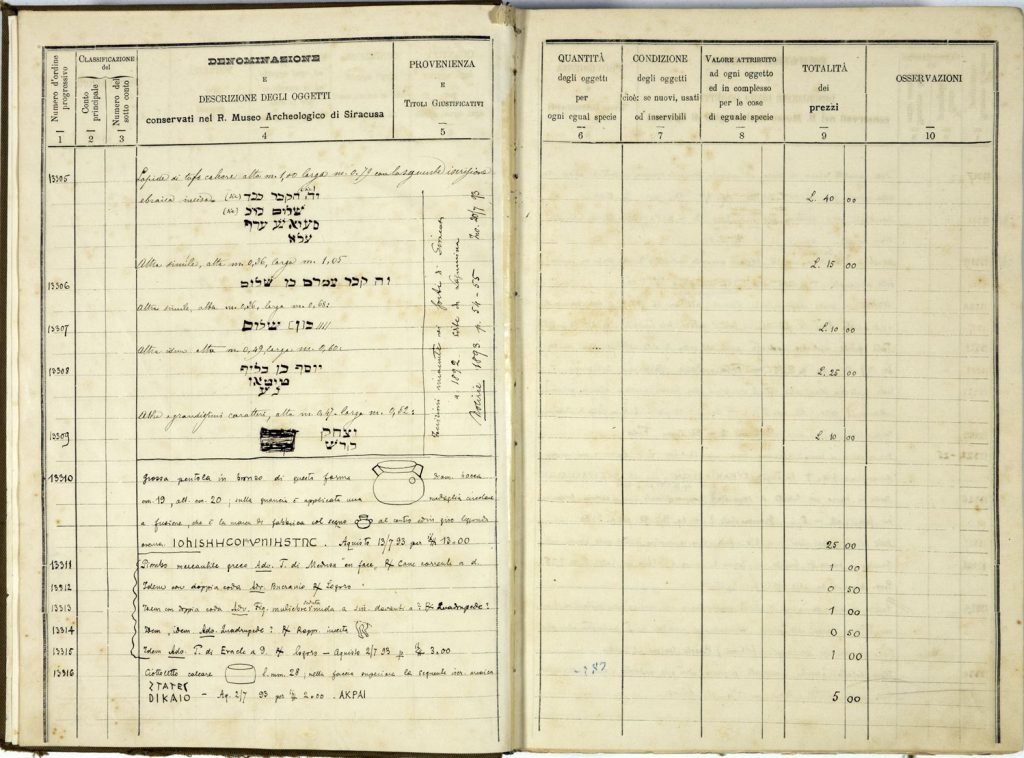 Numero d'ordine progressivo
CLASSIFICAZIONE
del
Conto principale
Numero del sotto conto
DENOMINAZIONE
E
DESCRIZIONE DEGLI OGGETTI
conservati nel R. Museo Archeologico di Siracusa
PROVENIENZA
E
TITOLI GIUSTIFICATIVI
1 2 3 4 5
13305 Lapide di tufo calcare alta m. 1,00 larga m. 0.79 con la seguente iscrizione
ebraica
וה הקבר
שלום
עלא
Altra simile, alta m. 0,26, larga m. 1,65
13306 וה קבר עמרם בן שלום
Altra simile, alta m. 0,26, larga m. 0,68:
13307 שלום
Altra idem alta m. 0,49, larga m. 0,60:
13308 יוסף בן כליף
Altra a grandissimi caratteri, alta m. larga m. 0,62:
13309 יצחק
a 1892
Notizie 1893 p. 54-55
13310 Grossa pentola in bronzo di questa forma diam. bocca
cm. 19, alt. cm. 20; sulla è applicata una medaglia circolare
a fusione, che è la marca di fabbrica col segno al centro ed in giro leggenda
Aquisto 13/7 93 per 13.00
13311 Piombo mercantile greco Adv. T. di Medusa en face, Cane corrente a d.
13312 Idem con doppia coda Adv. Bucranio Logoro
13313 Idem con doppia coda Adv. Fig. muliebre seduta nuda a sin. davanti a ? Quadrupede ?
13314 Idem, idem Adv. Quadrupede ? Rapp. incerta
13315 Idem Adv. T. di Eracle a S. logoro - Aquisto 2/7 93 p 3.00
13316 Ciottoletto calcare l. mm. 28; nella faccia superiore la seguente iscr. arcaica
ΣΤΑΤΕΣ
DIKAIO - Aq. 2/7 93 per 2.00. AKRAI
QUANTITÀ
degli oggetti
per
ogni egual specie
CONDIZIONE
degli oggetti
cioè: se nuovi, usati
od inservibili
VALORE ATTRIBUITO
ad ogni oggetto
ed in complesso
per le cose
di eguale specie
TOTALITÀ
dei
prezzi
OSSERVAZIONI
6 7 8 9 10
L. 40 00
L. 15 00
L. 10 00
L. 25 00
L. 10 00
25 00
1 00
0 50
1 00
0 50
1 00
5 00